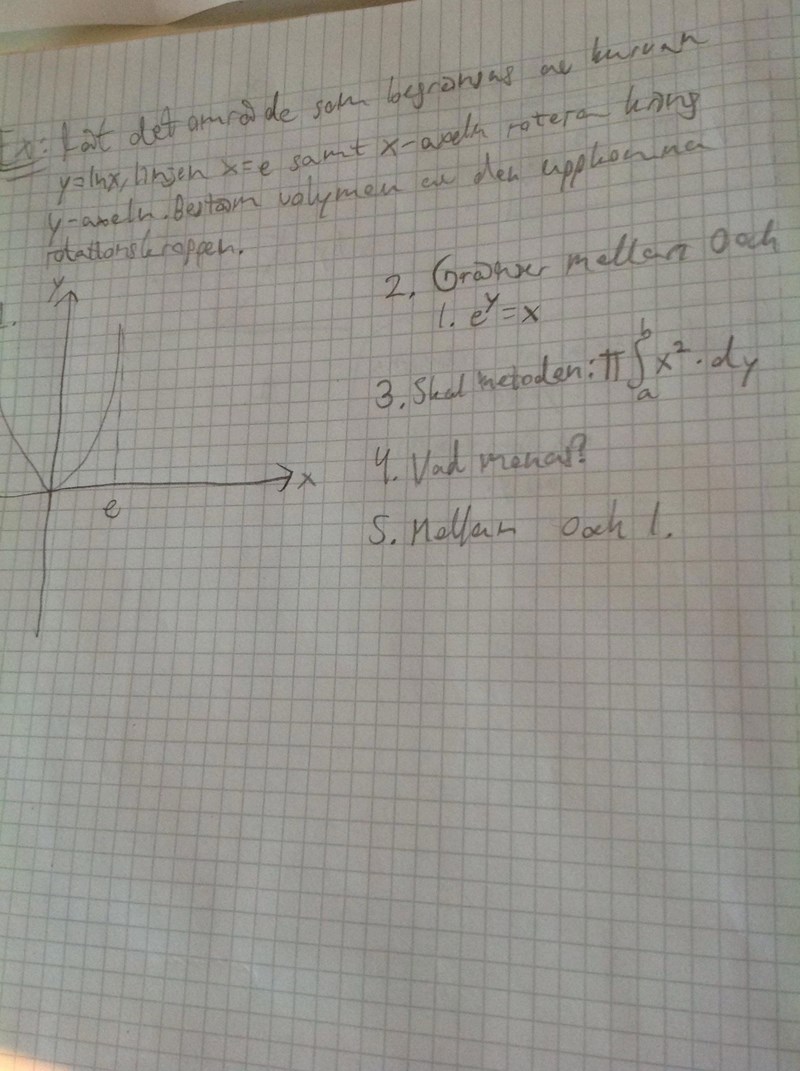 Ex: Låt det område som begränsas av kurvan
y=lnx, linjen x=e samt x-axeln rotera kring
y-axeln. Bestäm volymen av den uppkomna
rotationskroppen.
1.
y
x
e
2. Gränser mellan 0 och
1. e^y = x
3. Skal metoden: π∫_a^b x²·dy
4. Vad menas?
5. Mellan 0 och 1.